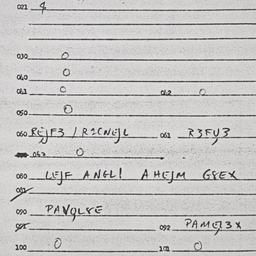 021 4
030 0
040 0
041 0 042 0
050 0
060 REJF3 / R2CNEJL 061 R3FU3
062 0
080 LEJF ANGL! AHEJM G8EX
081
090 PAVQL8E
091 092 PAMEJ3X
100 0 101 0